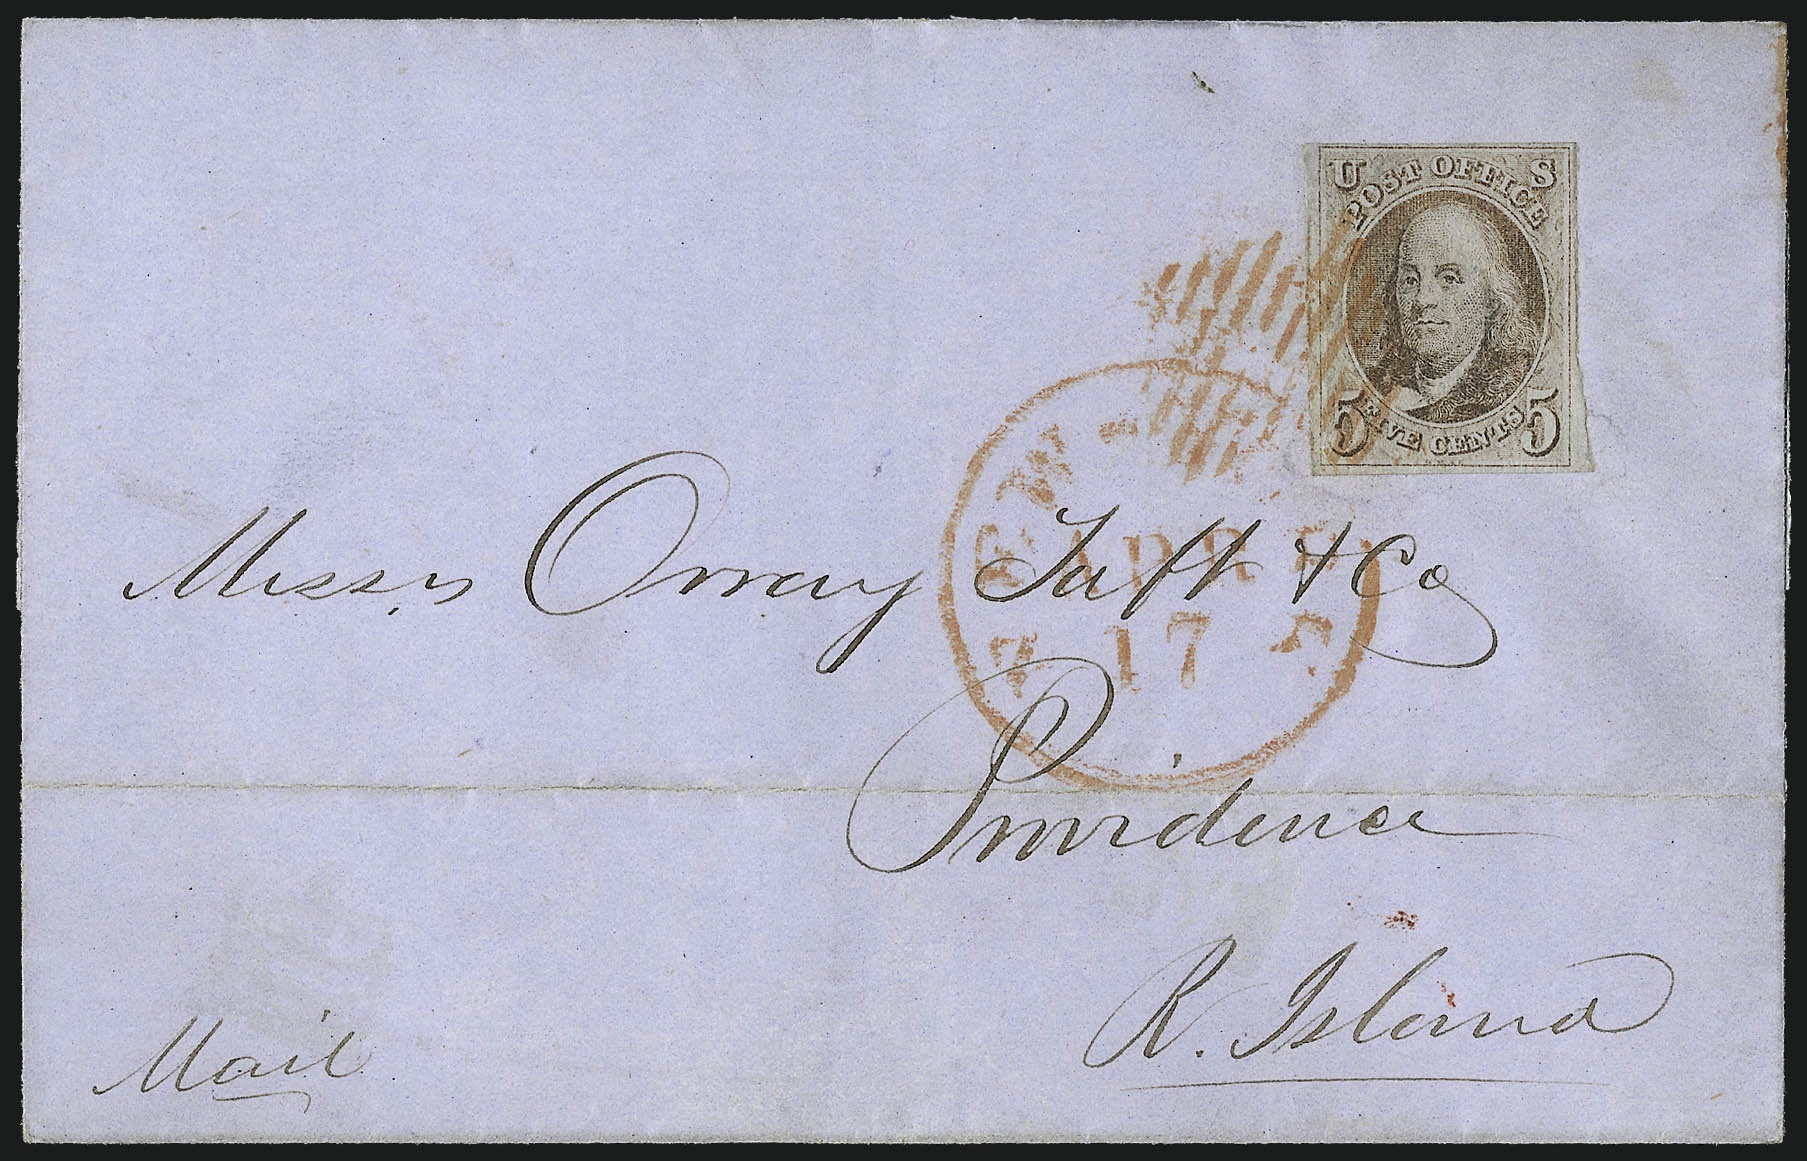 U S
POST OFFICE
5 FIVE CENTS 5
NEW -
APR
17
Messrs Orray Taft & Co
Providence
R. Island
Mail